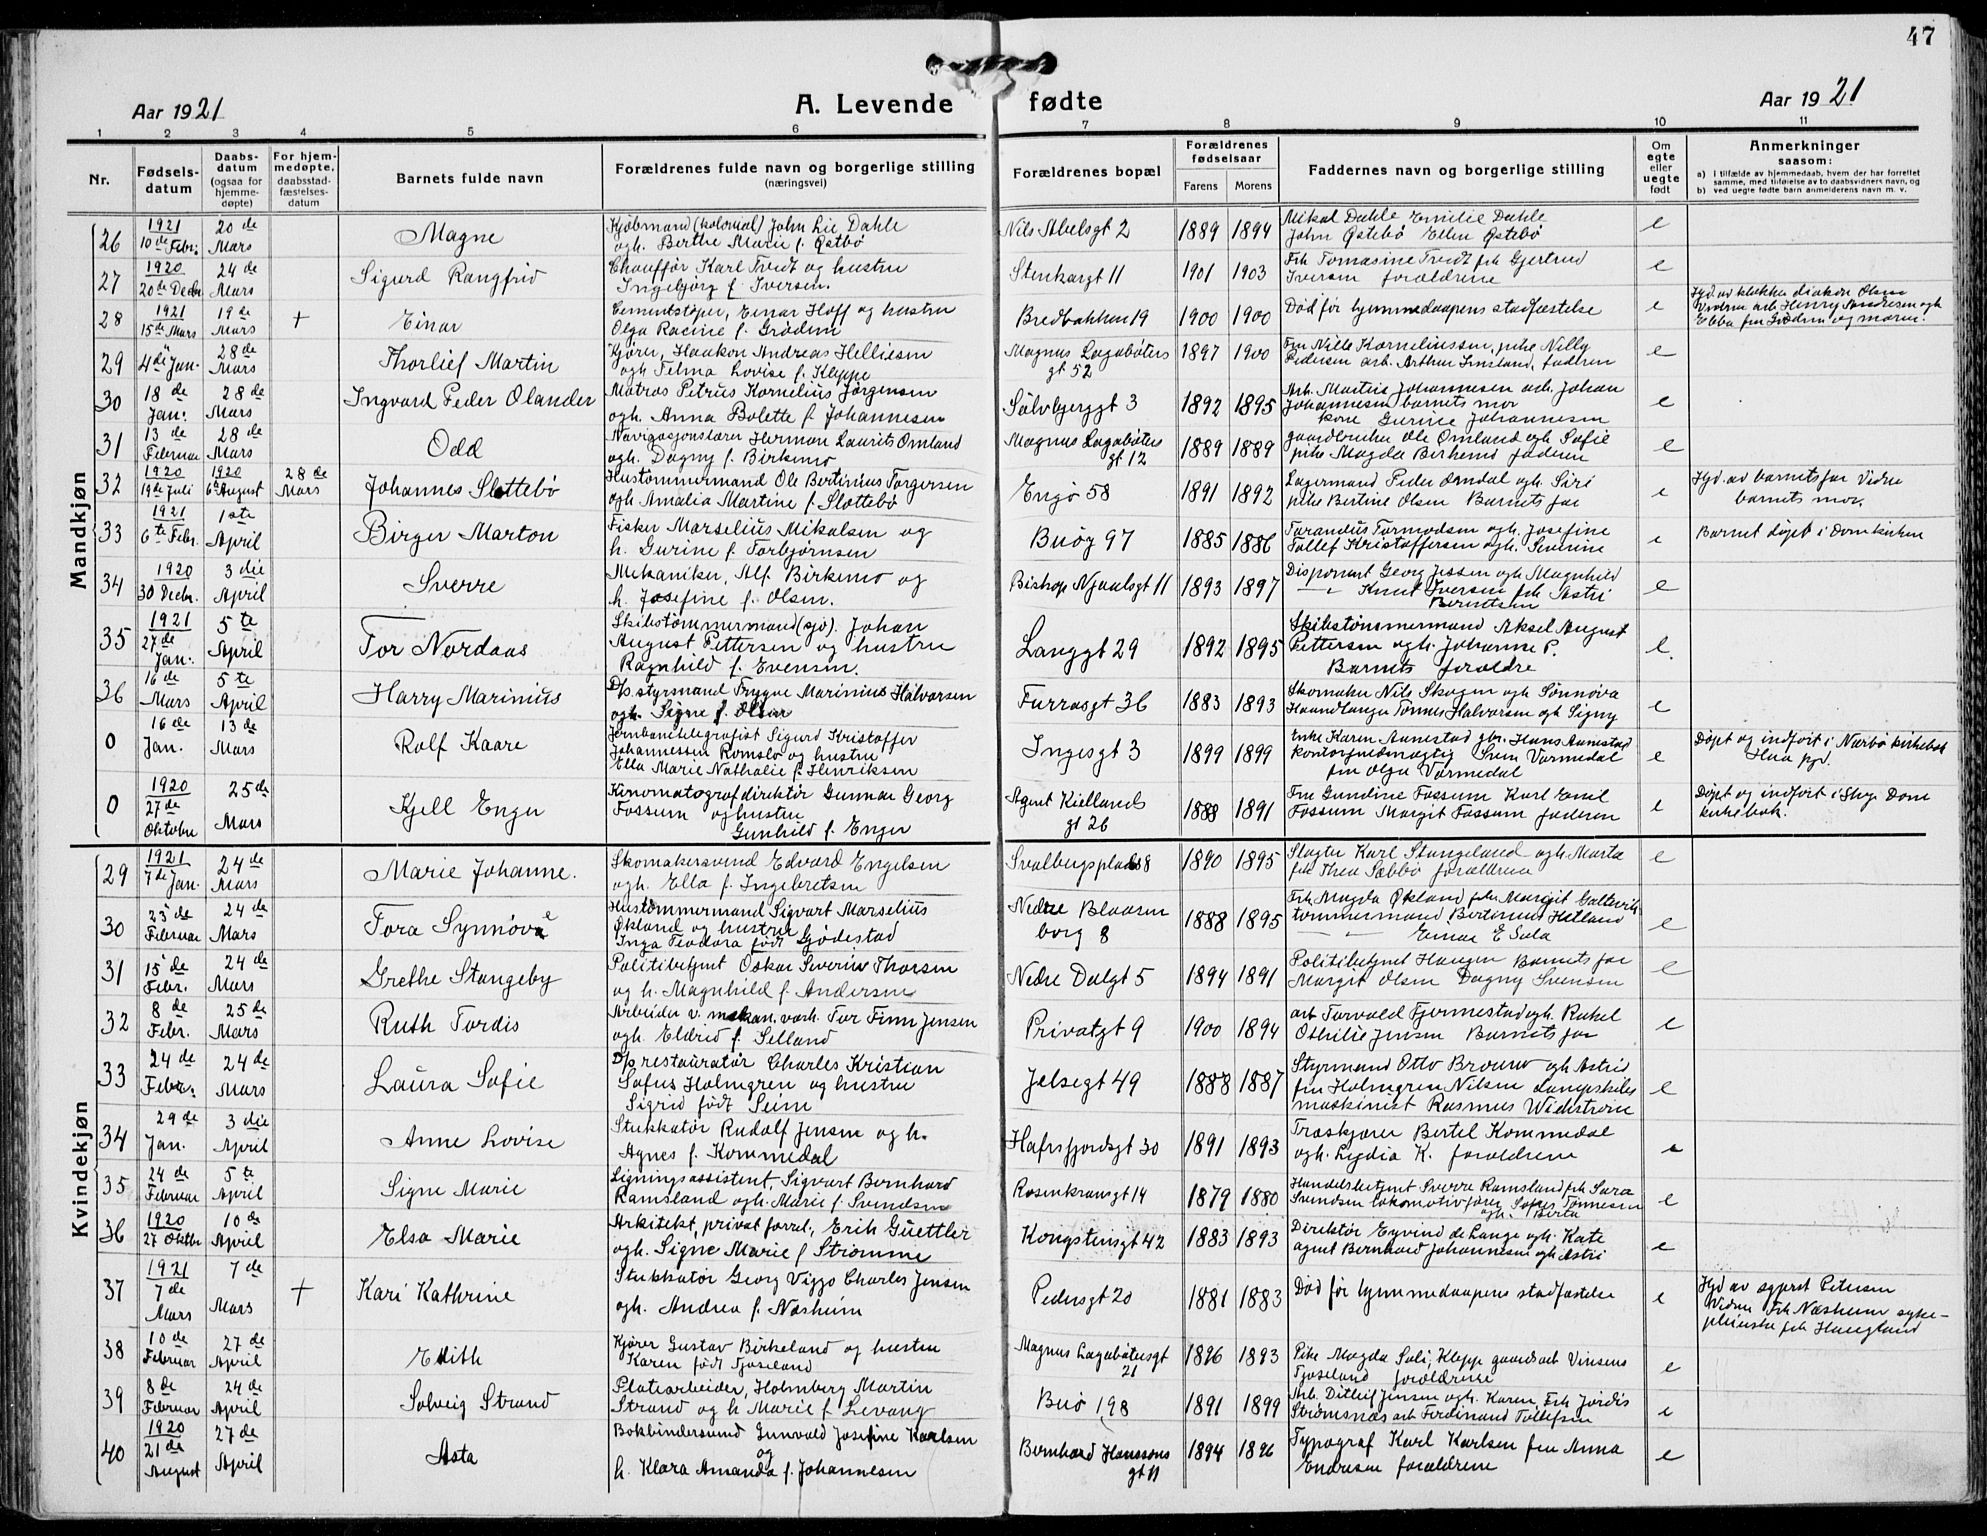 47
Aar 1921
A. Levende fødte
Aar 1921
1 2 3 4 5 6 7 8 9 10 11
Nr.
Fødsels-datum
Daabs-datum (ogsaa for hjemme-døpte)
For hjem-medøpte, daabsstad-fæstelses-datum
Barnets fulde navn
Forældrenes fulde navn og borgerlige stilling (næringsvei)
Forældrenes bopæl
Forældrenes fødselsaar
Farens Morens
Faddernes navn og borgerlige stilling
Om egte eller uegte født
Anmerkninger saasom:
a) i tilfælde av hjemmedaab, hvem der har forrettet samme, med tilføielse av to daabsvidners navn, og
b) ved uegte fødte barn anmelderens navn m. v.
Mandkjøn
26 1921 10de Febr. 20de Mars Magne Kjøbmand (kolonial) John Lie Dahle
ogh. Berthe Marie f. Østbø Nils Abelsgt 2 1889 1894 Mikal Dahle Emilie Dahle
John Østebø Ellen Østebø e
27 1920 20de Decbr. 24de Mars Sigurd Rangfrid Chauffør Karl Tvedt og hustru
Ingebjørg f. Iversen. Stenkargt 11 1901 1903 Frk Tomasine Tvedt frk Gjertrud
Iversen forældrene e
28 1921 15de Mars 19de Mars + Einar Cementstøper, Einar Hoff og hustru
Olga Racine f. Grødem Bredbakken 19 1900 1900 Død før hjemmedaapens stadfæstelse e Hjd. av klokker diakon Olsen
Vidner arb. Henry Andresen ogh
Ebba fru Grødem og moren.
29 4de Jan. 28de Mars Thorlief Martin Kjører, Haakon Andreas Helliesen
ogh Telma Lovise f. Kleppe Magnus Lagabøters
gt 52 1897 1900 Fru Nille Korneliussen, pike Nilly
Pedersen arb. Arthur Imsland, faderen e
30 18de Jan. 28de Mars Ingvard Peder Olander Matros Petrus Kornelius Jørgensen
ogh. Anna Bolette f. Johannesen Sølvbjerggt 3 1892 1895 Arb. Martin Johannesen arb. Johan
Johannesen barnets mor
kone Gurine Johannesen e
31 13de Februar 28de Mars Odd Navigasjonslærer Herman Laurits Omland
ogh. Dagny f. Birkemo Magnus Lagabøters
gt 12 1889 1889 gaardbruker Ole Omland ogh Sofie
pike Magda Birkemo faderen e
32 1920 19de Juli 1920 6te August 28de Mars Johannes Slottebø Hustømmermand Ole Bertinius Torgersen
ogh. Amalia Martine f. Slottebø Engø 58 1891 1892 Lagermand Peder Omdal ogh. Siri
pike Bertine Olsen Barnets far e Hjd. av barnets far Vidne
barnets mor.
33 1921 6te Febr. 1ste April Birger Marton Fisker Marselius Mikalsen og
h. Gurine f. Torbjørnsen Buøy 97 1885 1886 Tarandus Tormodsen ogh. Josefine
Tollef Kristoffersen ogh. Severine e Barnet døpt i Domkirken
34 1920 30 Decbr. 3die April Sverre Mekaniker, Alf Birkemo og
h. Josefine f. Olsen. Biskop Njaalsgt 11 1893 1897 Disponent Georg Jessen ogh Magnhild
— " — Knut Iversen frk Astri
Berentsen e
35 1921 27de Jan. 5te April Tor Nordaas Skibstømmermand (sjø). Johan
August Pettersen og hustru
Ragnhild f. Evensen. Langgt 29 1892 1895 Skibstømmermand Aksel August
Pettersen ogh. Johanne P.
Barnets forældre e.
36 16de Mars 5te April Harry Marinius D/s styrmand Trygve Marinius Halvorsen
ogh. Signe f. Olsen Furrasgt 36 1883 1893 Skomaker Nils Skogen ogh Sønnøva
Haandlanger Tønnes Halvorsen ogh Signy e
0 16de Jan. 13de Mars Rolf Kaare Jernbanetelegrafist Sigurd Kristoffer
Johannessen Romslo og hustru
Ella Marie Nathalie f. Henriksen Ingesgt 3 1899 1899 Enke Karen Aanestad gbr. Hans Aanestad
kontorfuldmægtig Sven Varmedal
fru Olga Varmedal e Døpt og indført i Nærbø kirkebok
Haa pgd.
0 1920 27de Oktober 25de Mars Kjell Enger Kinomatografdirektør Gunnar Georg
Fossum og hustru
Gunhild f. Enger Agent Kiellands
gt 26 1888 1891 Fru Gundine Fossum Karl Emil
Fossum Margit Fossum faderen e Døpt og indført i Stvgr Dom
kirkebok.
Kvindekjøn
29 1921 7de Jan. 24de Mars Marie Johanne. Skomakersvend Edvard Engelsen
ogh. Ella f. Ingebretsen Svalbergsplads 8 1890 1895 Slagter Karl Stangeland ogh. Marta
frk Thea Sæbbø forældrene e
30 23de Februar 24de Mars Tora Synnøve Hustømmermand Sigvart Marselius
Økland og hustru
Inga Teodora født Gjødestad Nedre Blaasen
borg 8 1888 1895 Frk Magda Økland frk. Margit Galtevik
tømmermand Bertinius Hetland
— " — Einar E Sula e
31 15de Febr. 24de Mars Grethe Stangeby Politibetjent Oskar Severin Thorsen
og h. Magnhild f. Andersen Nedre Dalgt 5 1894 1891 Politibetjent Haugen Barnets far
Margit Olsen Dagny Svensen e
32 8de Febr. 25de Mars Ruth Tordis Arbeider v. mekan. verk. Tor Finn Jensen
ogh. Eldrid f. Selland Privatgt 9 1900 1894 arb Torvald Fjermestad ogh. Rakel
Othilie Jensen Barnets far e
33 24de Febr. 24de Mars Laura Sofie D/s restauratør Charles Kristian
Sofus Holmgren og hustru
Sigrid født Seim Jelsegt 49 1888 1887 Styrmand Otto Bruun ogh Astrid
fru Holmgren Nilsen
maskinist Rasmus Widstrøm e
34 29de Jan. 3die April Anne Lovise Stukkatør Rudolf Jensen og h.
Agnes f. Kommedal Hafrsfjordsgt 30 1891 1893 Træskjærer Bertel Kommedal
ogh. Lydia K. forældrene e
35 24de Februar 5te April Signe Marie Ligningsassistent Sigvart Bernhard
Ramsland ogh. Marie f. Svendsen Rosenkransgt 14 1879 1880 Handelsbetjent Sverre Ramsland frk Sara
Svendsen lokomotivfører Sofus Tønnesen
ogh. Berta e
36 1920 27 Oktbr 10de April Elsa Marie Arkitekt, privat forret., Erik Guettler
ogh. Signe Marie f. Strømme Kongstensgt 42 1883 1893 Direktør Eyvind de Lange ogh. Kate
agent Bernhard Johannesen ogh Astri e
37 1921 7de Mars 7de Mars + Kari Kathrine Stukkatør Georg Viggo Charles Jensen
ogh. Andrea f. Næsheim Pedersgt 20 1881 1883 Død før hjemmedaapens stadfæstelse e Hjd av sgprst Petersen
Vidner Frk Næsheim syke-
pleierske frk Haugland
38 10de Februar 27de April Edith Kjører Gustav Birkeland og hustru
Karen født Tjoseland Magnus Lagabøtersgt
21 1896 1893 Pike Magda Soli, Klepp gaardsarb Vinsens
Tjoseland forældrene e
39 8de Februar 24de April Solveig Strand Platearbeider, Holmberg Martin
Strand og h Marie f. Levang Buø 198 1891 1899 Arb. Ditleif Jensen ogh. Karen, Frk Jordis
Strømsnæs arb Ferdinand Tollefsen e
40 1920 21de August 27de April Asta Bokbindersvend Gunvald Josefine Karlsen
og
h. Klara Amanda f. Johannesen Bernhard Hanssons
gt 11 1894 1896 Typograf Karl Karlsen fru Anna
Endresen forældrene e